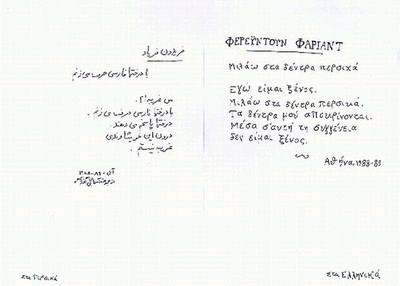 فریدون فریاد
با درختها فارسی حرف می‌زنم
من غریبه‌ام.
با درختها فارسی حرف می‌زنم.
درختها پاسخم می‌دهند.
درون این خویشاوندی
غریب نیستم.
ΦΕΡΕΫΝΤΟΥΝ ΦΑΡΙΑΝΤ
Μιλάω στα δέντρα περσικά
Εγώ είμαι ξένος.
Μιλάω στα δέντρα περσικά.
Τα δέντρα μού αποκρίνονται.
Μέσα σ'αυτή τη συγγένεια
δεν είμαι ξένος.
Αθήνα, 1988-89
στα Περσικά
στα Ελληνικά